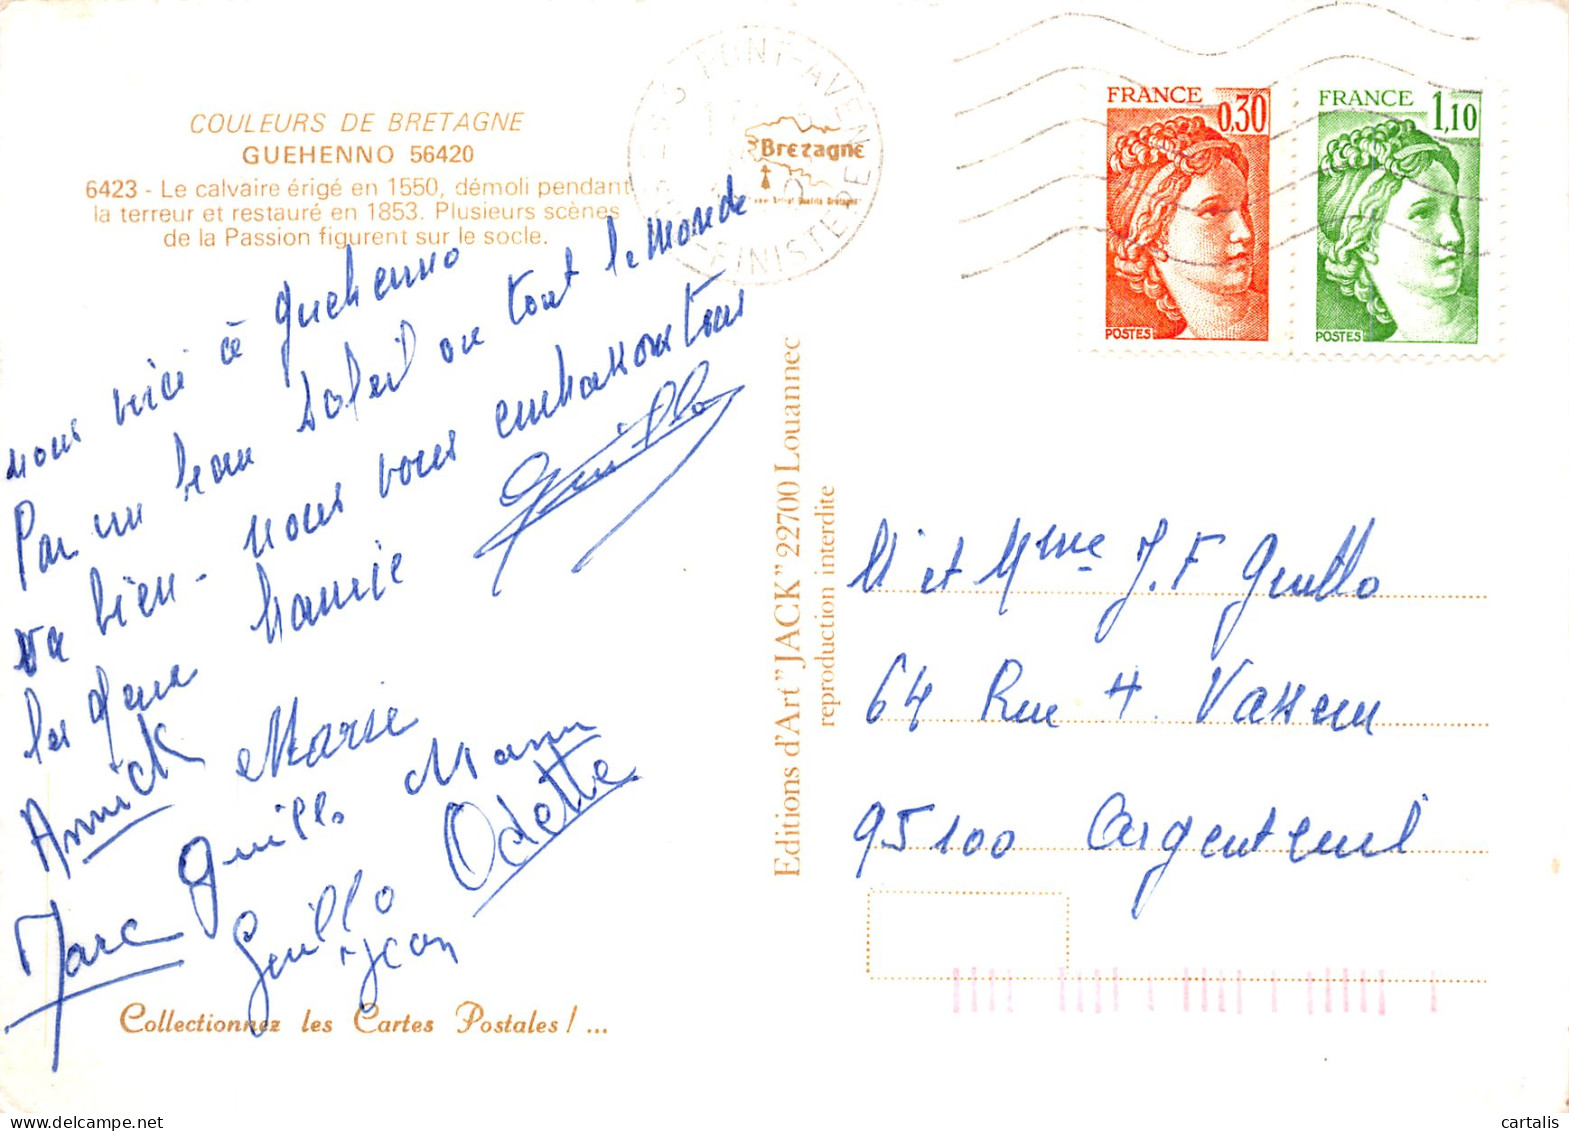 COULEURS DE BRETAGNE
GUEHENNO 56420
6423 - Le calvaire érigé en 1550, démoli pendant
la terreur et restauré en 1853. Plusieurs scènes
de la Passion figurent sur le socle.
nous voici à Guehenno
Par un beau soleil ou tout le Monde
va bien - nous vous embrassons tous
les deux
Guillo
Annick Marie
Guillo Manu
Marc Guillo Odette
Jean
Collectionnez les Cartes Postales ! ...
Editions d'Art "JACK" 22700 Louannec
reproduction interdite
PONT-AVEN
FINISTERE
Bretagne
FRANCE
0,30
POSTES
FRANCE
1,10
POSTES
M et Mme J.F Guillo
64 Rue H. Vasseur
95100 Argenteuil
cartalis